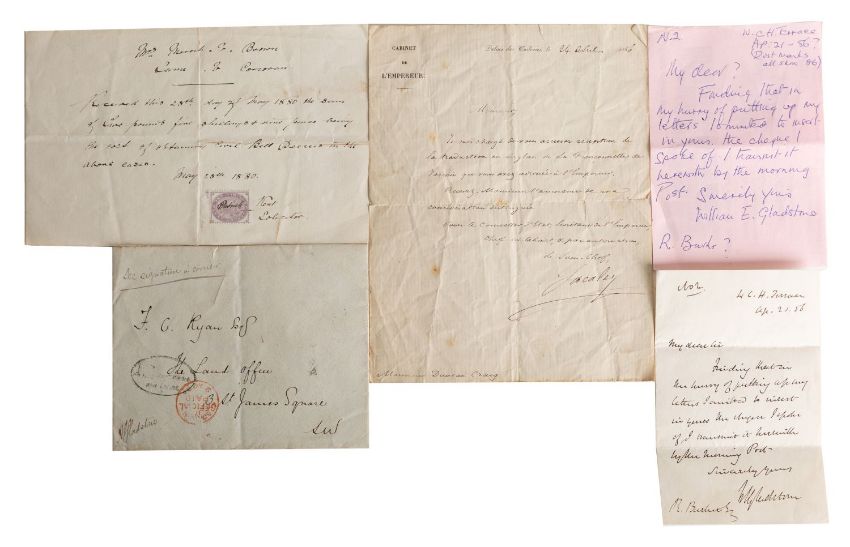 Received this 28th day of May 1880 the sum
of Two pounds five shillings & nine pence being
the cost of obtaining Civil Bill Decree in the
above cases.
May 28th 1880.
Solicitor
CABINET
DE
L'EMPEREUR.
Palais des Tuileries, le 24
Monsieur
Je suis chargé de vous accuser réception de
la traduction en anglais de la
que vous avez adressée à l'Empereur.
Recevez, Monsieur, l'assurance de ma
considération distinguée
Pour le Conseiller d'Etat, Secrétaire de l'Empereur
Chef du Cabinet, & par autorisation
Le Sous-Chef,
Sacaley
Monsieur Duncan Craig
N.2
W. C. H. Terrace
Ap. 21-56?
(Post marks
all seem 86)
My dear?
Finding that in
my hurry of putting up my
letters I omitted to insert
in yours the cheque I
spoke of I transmit it
herewith by the morning
Post. Sincerely yours
William E. Gladstone
R. Burke?
See signature in corner
F. C. Ryan Esq
The Land Office
St James Square
SW
OFFICIAL
PAID
Gladstone
No 2
C. H. Terrace
Ap. 21. 56
My dear Sir
Finding that in
the hurry of putting up my
letters I omitted to insert
in yours the cheque I spoke
of I transmit it herewith
by the morning Post-
Sincerely yours
WEGladstone